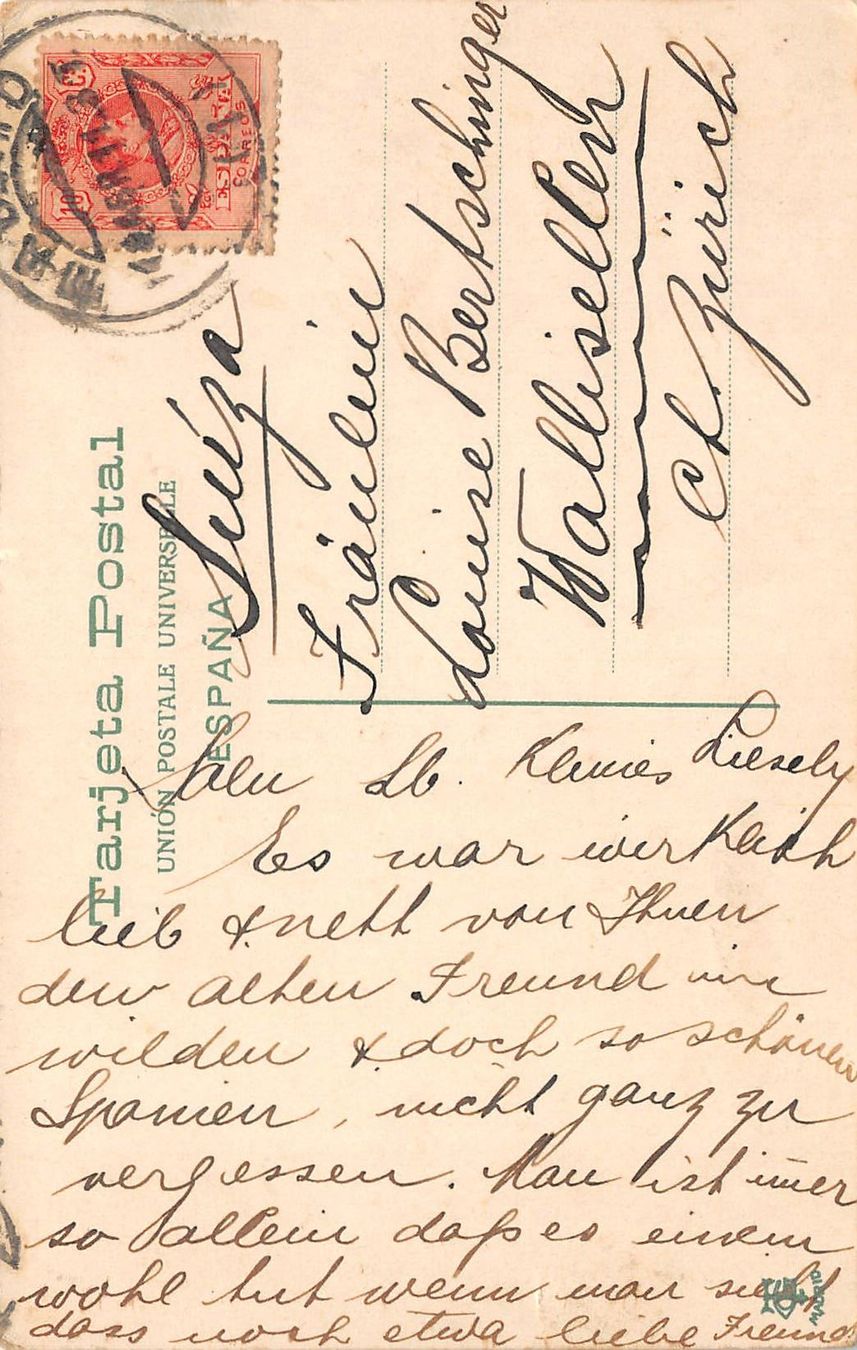 Tarjeta Postal
UNIÓN POSTALE UNIVERSELLE
ESPAÑA
10 Cs.
ESPAÑA
CORREOS
Suíza
Fräulein
Louise Bertschinger
Wallisellen
Ct. Zürich
Mein Lb. Kleines Liesely
Es war wirklich
lieb & nett von Ihnen
den alten Freund im
wilden & doch so schönen
Spanien, nicht ganz zu
vergessen. Man ist im̅er
so allein daß es einem
wohl tut wenn man sieht
dass noch etwa liebe Freund
MADRID